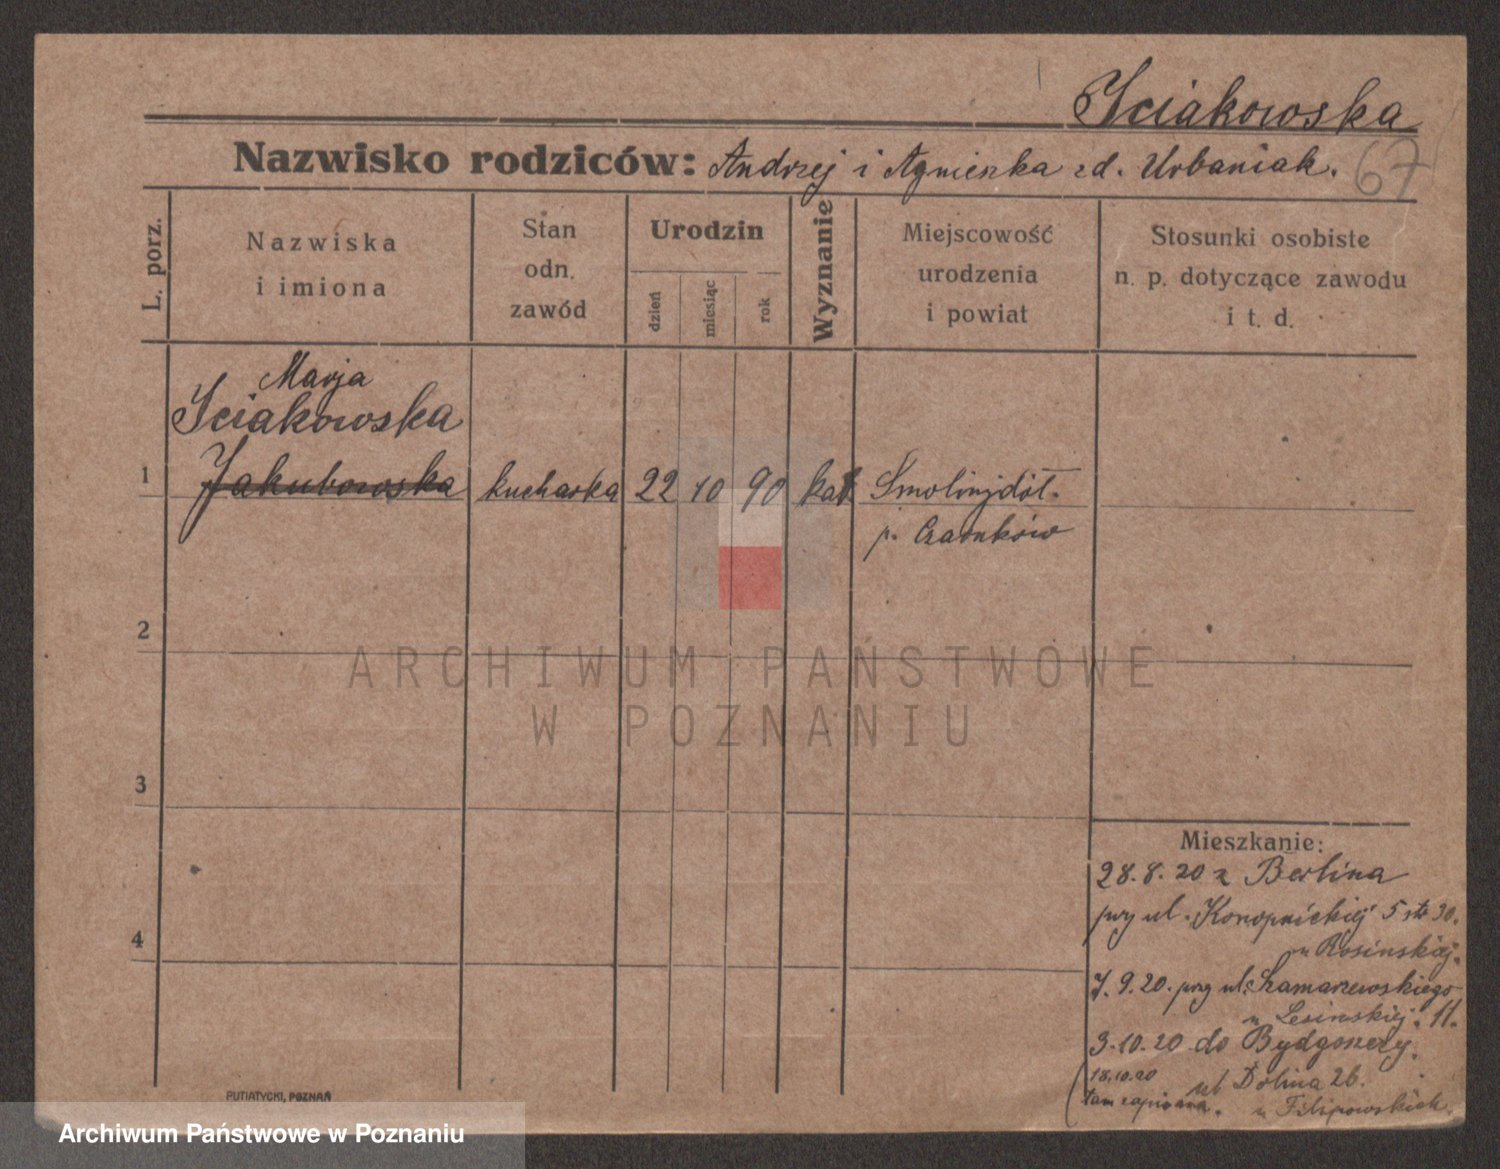 Iciakowska
Nazwisko rodziców: Andrzej i Agnieszka zd. Urbaniak.
67
L. porz.
Nazwiska
i imiona
Stan
odn.
zawód
Urodzin
dzień
miesiąc
rok
Wyznanie
Miejscowość
urodzenia
i powiat
Stosunki osobiste
n. p. dotyczące zawodu
i t. d.
Marja
Iciakowska
1 Jakubowska kucharka 22 10 90 kat
p. Czarnków
2
3
4
ARCHIWUM PAŃSTWOWE
W POZNANIU
Mieszkanie:
28.8.20 z Berlina
przy ul. Konopnickiej 5 30.
u Rosinskiej.
7.9.20. przy ul. Szamarzewskiego
u Lesinskiej. 11.
3.10.20 do Bydgoszczy.
18.10.20 ul Dolina 26.
tam zapisana. u Filipowskich
PUTIATYCKI, POZNAŃ
Archiwum Państwowe w Poznaniu